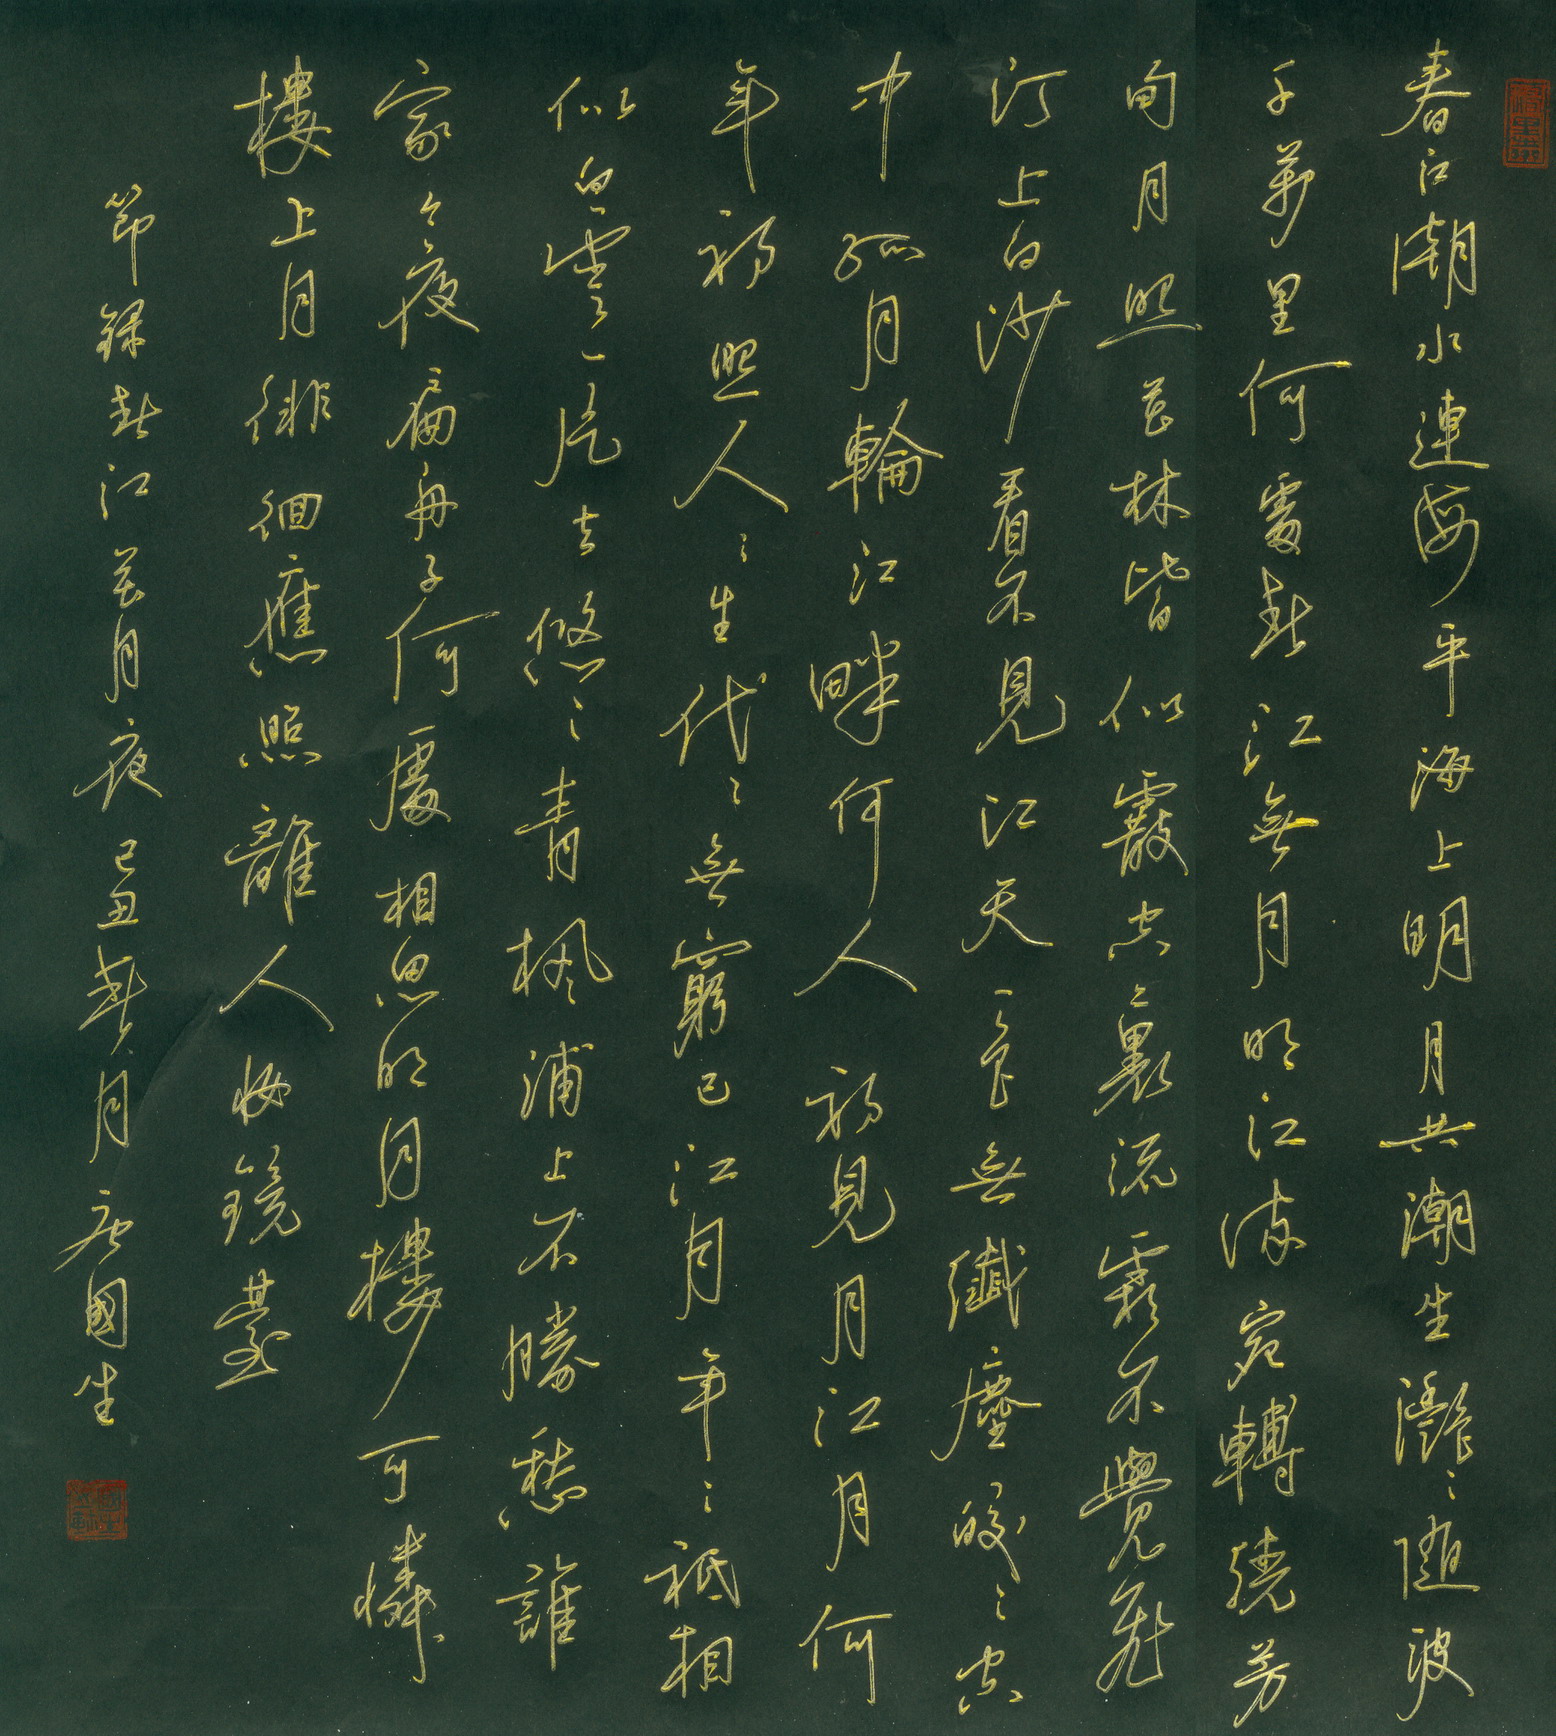 春江潮水連海平海上明月共潮生灩〻隨波
千萬里何處春江無月明江流宛轉繞芳
甸月照花林皆似霰空〻裏流霜不覺飛
汀上白沙看不見江天一色無纖塵皎〻空
中孤月輪江畔何人初見月江月何
年初照人〻生代〻無窮已江月年〻祗相
似白雲一片去悠〻青楓浦上不勝愁誰
家今夜扁舟子何處相思明月樓可憐
樓上月徘徊應照離人妝鏡臺
節錄春江花月夜己丑春月國生